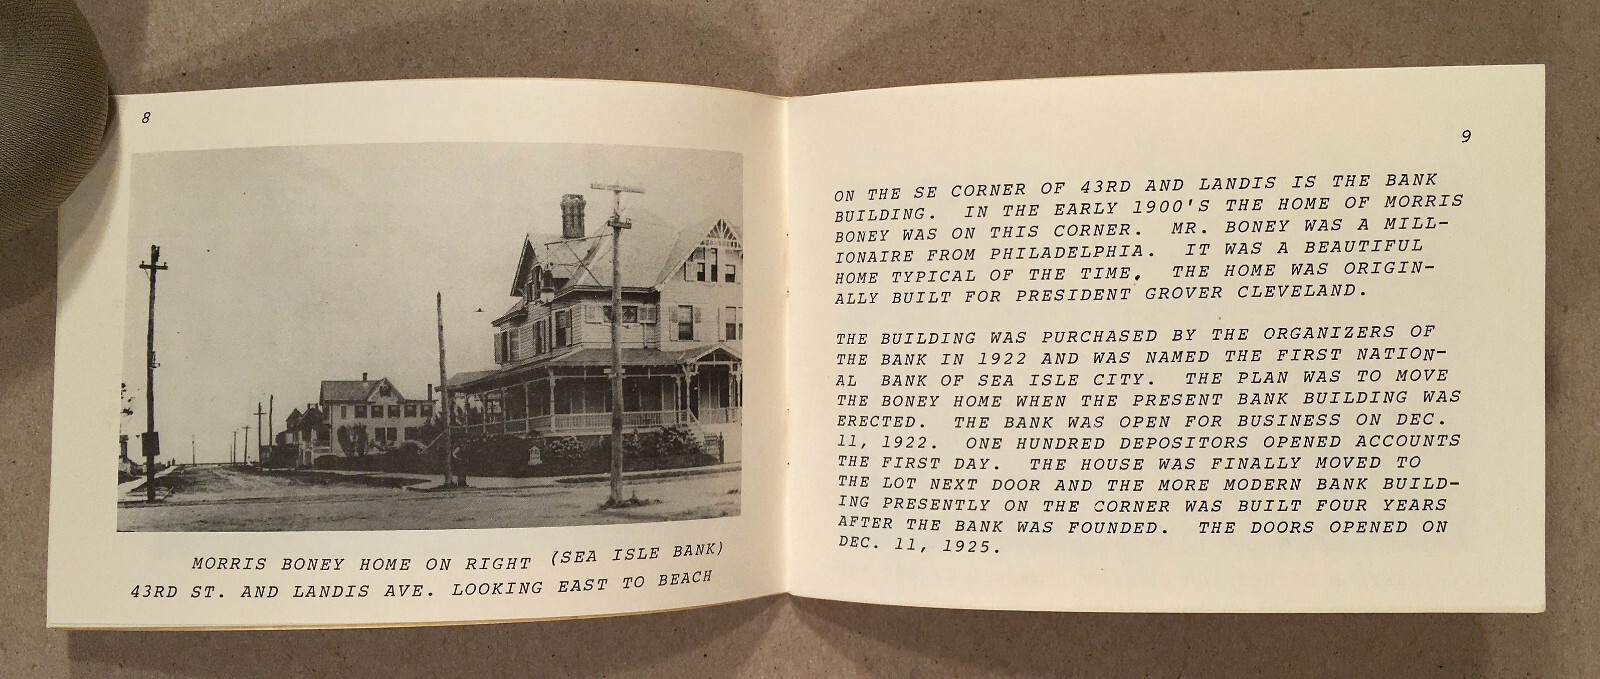 8
MORRIS BONEY HOME ON RIGHT (SEA ISLE BANK)
43RD ST. AND LANDIS AVE. LOOKING EAST TO BEACH
9
ON THE SE CORNER OF 43RD AND LANDIS IS THE BANK
BUILDING. IN THE EARLY 1900'S THE HOME OF MORRIS
BONEY WAS ON THIS CORNER. MR. BONEY WAS A MILL-
IONAIRE FROM PHILADELPHIA. IT WAS A BEAUTIFUL
HOME TYPICAL OF THE TIME. THE HOME WAS ORIGIN-
ALLY BUILT FOR PRESIDENT GROVER CLEVELAND.
THE BUILDING WAS PURCHASED BY THE ORGANIZERS OF
THE BANK IN 1922 AND WAS NAMED THE FIRST NATION-
AL BANK OF SEA ISLE CITY. THE PLAN WAS TO MOVE
THE BONEY HOME WHEN THE PRESENT BANK BUILDING WAS
ERECTED. THE BANK WAS OPEN FOR BUSINESS ON DEC.
11, 1922. ONE HUNDRED DEPOSITORS OPENED ACCOUNTS
THE FIRST DAY. THE HOUSE WAS FINALLY MOVED TO
THE LOT NEXT DOOR AND THE MORE MODERN BANK BUILD-
ING PRESENTLY ON THE CORNER WAS BUILT FOUR YEARS
AFTER THE BANK WAS FOUNDED. THE DOORS OPENED ON
DEC. 11, 1925.